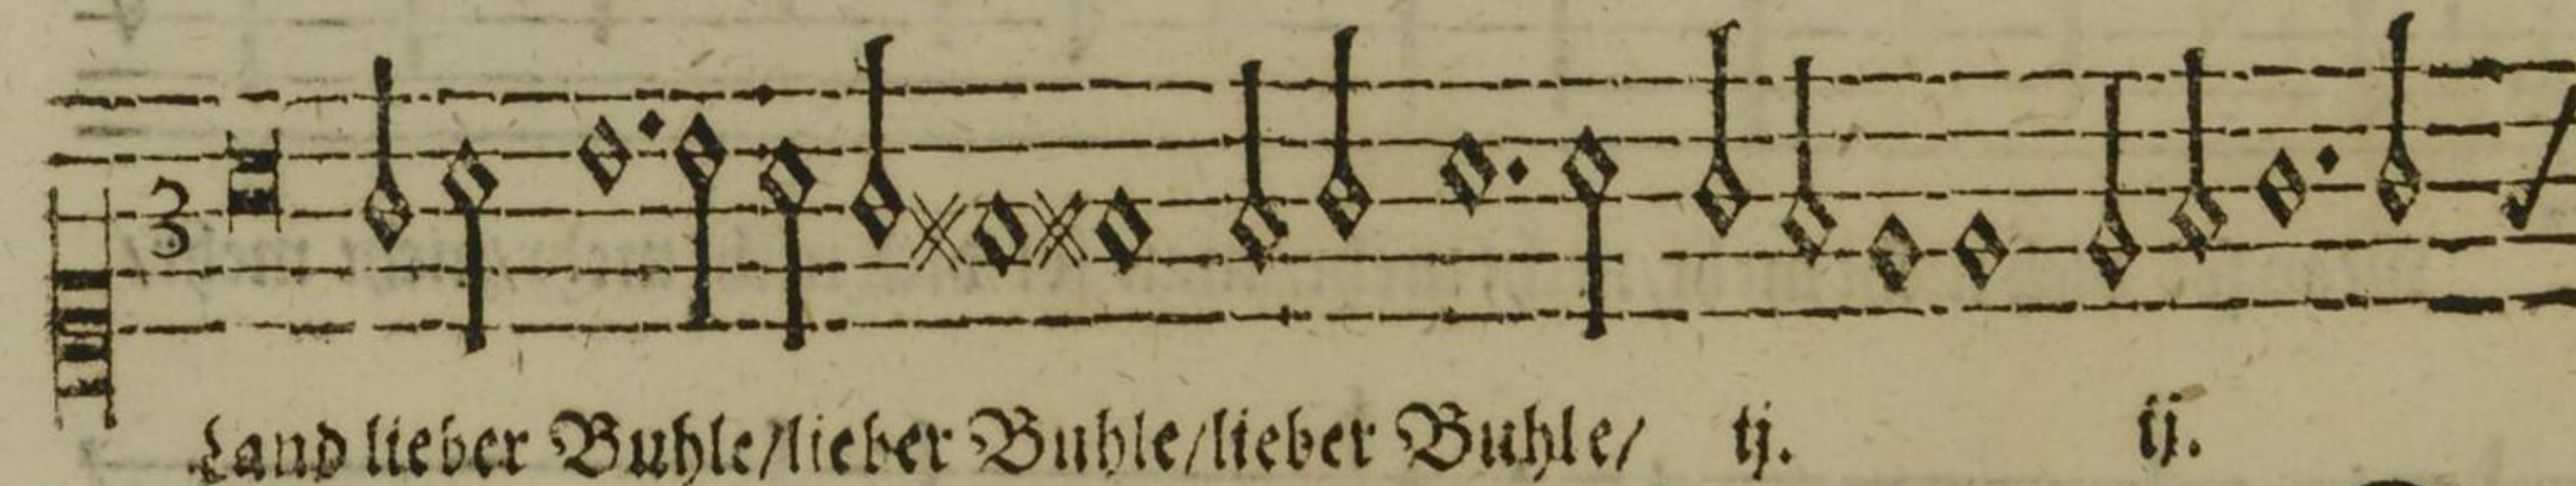 3
Land lieber Buhle/lieber Buhle/lieber Buhle/ ij. ij.